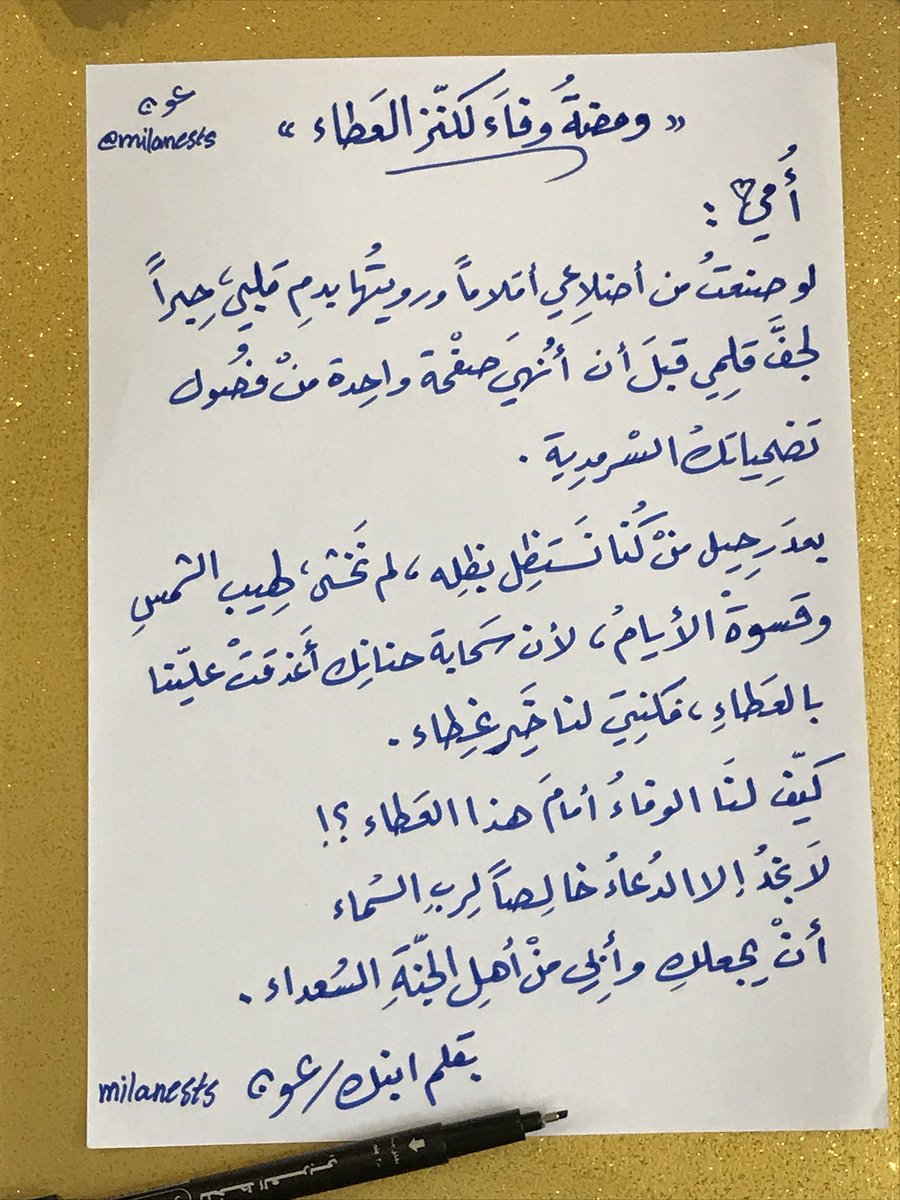 عون
@milanests
« ومضةُ وفاءَ لكنّز العَطاء »
أُمي :
لو صنعتُ من أضلاعِي أقلاماً ورويتُها بدمِ قلبي، حِبراً
لجفَّ قلِمِي قبلَ أن أُنهيَ صفْحة واحِدة منْ فصُول
تضحِياتكُ السْرمدِية .
بعدَ رحِيل منْ كُنا نَستَظِل بظِله ، لم نَخشى، لهِيب الشمسِ
وقسوةْ الأيامُ، لأن سَحابة حنانِك أَغدقتْ عليّنا
بالعَطاءِ، فكنتِي لنا خَيرِ غِطاء .
كَيّف لنَا الوفاءُ أمامَ هذا العَطاء ؟!
لاَ نجدُ إلا الدُعاءُ خالِصاً لِربِ السُماء
أنْ يجعلكِ وأبِي منْ أهلِ الجنّةِ السُعداء .
بقلم ابنك / عون milanests